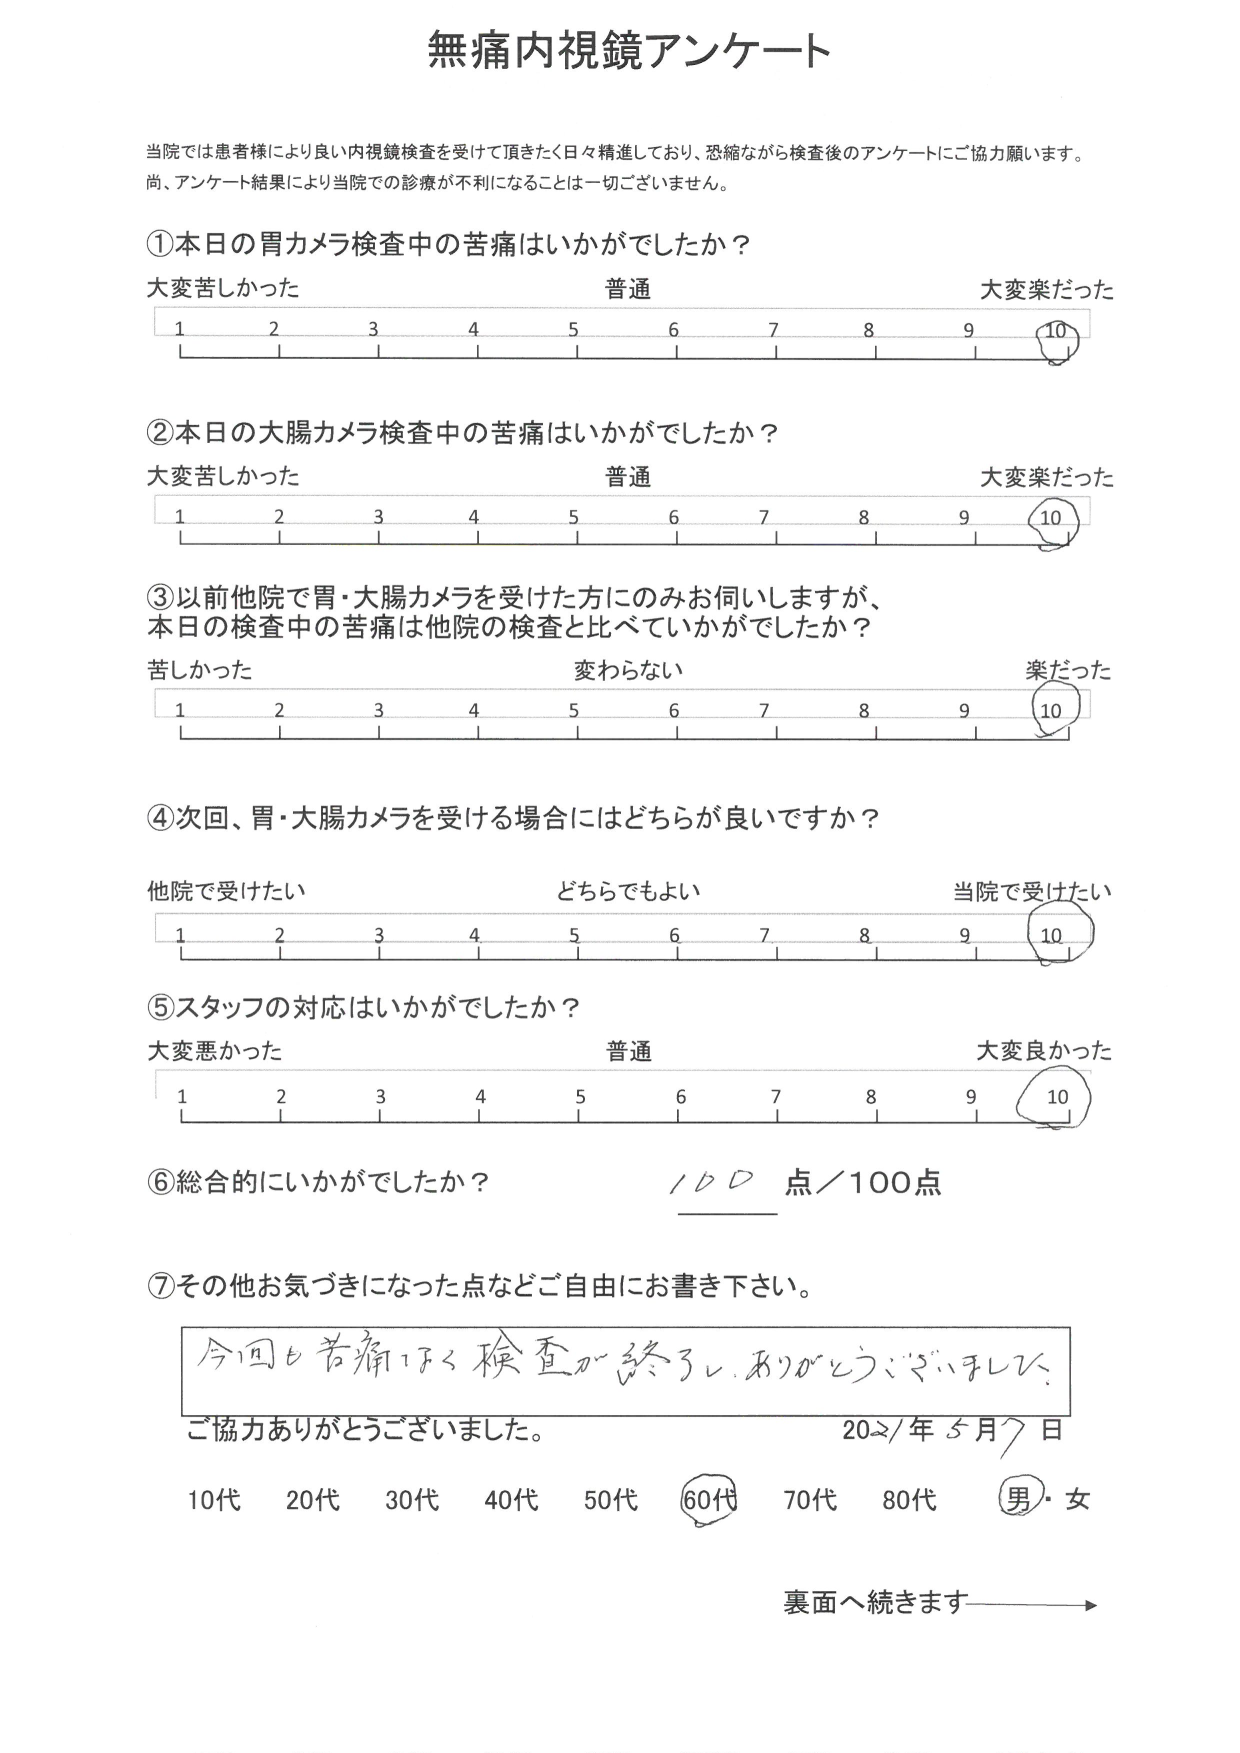 無痛内視鏡アンケート
当院では患者様により良い内視鏡検査を受けて頂きたく日々精進しており、恐縮ながら検査後のアンケートにご協力願います。
尚、アンケート結果により当院での診療が不利になることは一切ございません。
①本日の胃カメラ検査中の苦痛はいかがでしたか？
大変苦しかった 普通 大変楽だった
1 2 3 4 5 6 7 8 9 10
②本日の大腸カメラ検査中の苦痛はいかがでしたか？
大変苦しかった 普通 大変楽だった
1 2 3 4 5 6 7 8 9 10
③以前他院で胃・大腸カメラを受けた方にのみお伺いしますが、
本日の検査中の苦痛は他院の検査と比べていかがでしたか？
苦しかった 変わらない 楽だった
1 2 3 4 5 6 7 8 9 10
④次回、胃・大腸カメラを受ける場合にはどちらが良いですか？
他院で受けたい どちらでもよい 当院で受けたい
1 2 3 4 5 6 7 8 9 10
⑤スタッフの対応はいかがでしたか？
大変悪かった 普通 大変良かった
1 2 3 4 5 6 7 8 9 10
⑥総合的にいかがでしたか？ 100 点／100点
⑦その他お気づきになった点などご自由にお書き下さい。
今回も苦痛なく検査が終了し、ありがとうございました。
ご協力ありがとうございました。 2021年5月7日
10代 20代 30代 40代 50代 60代 70代 80代 男・女
裏面へ続きます